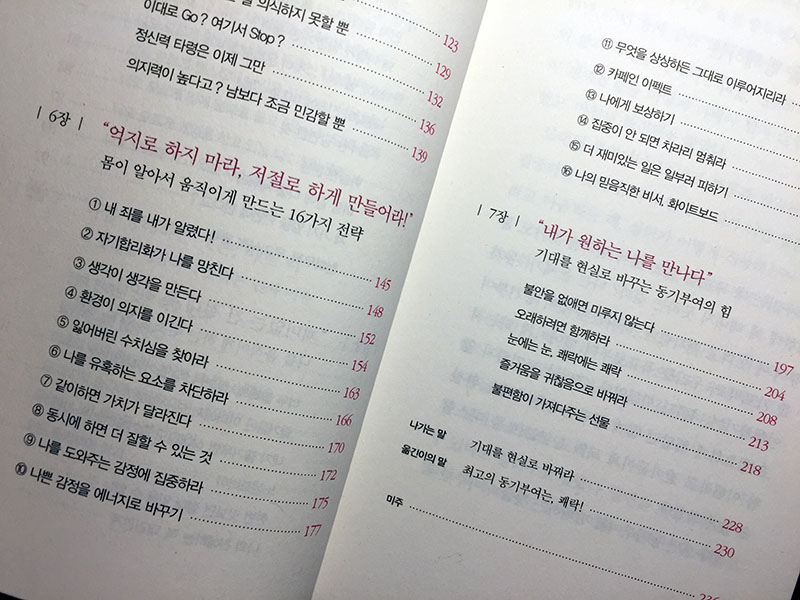 의식하지 못할 뿐 123
이대로 Go? 여기서 Stop? 129
정신력 타령은 이제 그만 132
의지력이 높다고? 남보다 조금 민감할 뿐 136
139
| 6장 | “억지로 하지 마라, 저절로 하게 만들어라!”
몸이 알아서 움직이게 만드는 16가지 전략
① 내 죄를 내가 알렸다! 145
② 자기합리화가 나를 망친다 148
③ 생각이 생각을 만든다 152
④ 환경이 의지를 이긴다 154
⑤ 잃어버린 수치심을 찾아라 163
⑥ 나를 유혹하는 요소를 차단하라 166
⑦ 같이하면 가치가 달라진다 170
⑧ 동시에 하면 더 잘할 수 있는 것 172
⑨ 나를 도와주는 감정에 집중하라 175
⑩ 나쁜 감정을 에너지로 바꾸기 177
⑪ 무엇을 상상하든 그대로 이루어지리라
⑫ 카페인 이펙트
⑬ 나에게 보상하기
⑭ 집중이 안 되면 차라리 멈춰라
⑮ 더 재미있는 일은 일부러 피하기
⑯ 나의 믿음직한 비서, 화이트보드
| 7장 | “내가 원하는 나를 만나다”
기대를 현실로 바꾸는 동기부여의 힘
불안을 없애면 미루지 않는다 197
오래하려면 함께하라 204
눈에는 눈, 쾌락에는 쾌락 208
즐거움을 귀찮음으로 바꿔라 213
불편함이 가져다주는 선물 218
나가는 말 기대를 현실로 바꿔라 228
옮긴이의 말 최고의 동기부여는, 쾌락! 230
미주 236